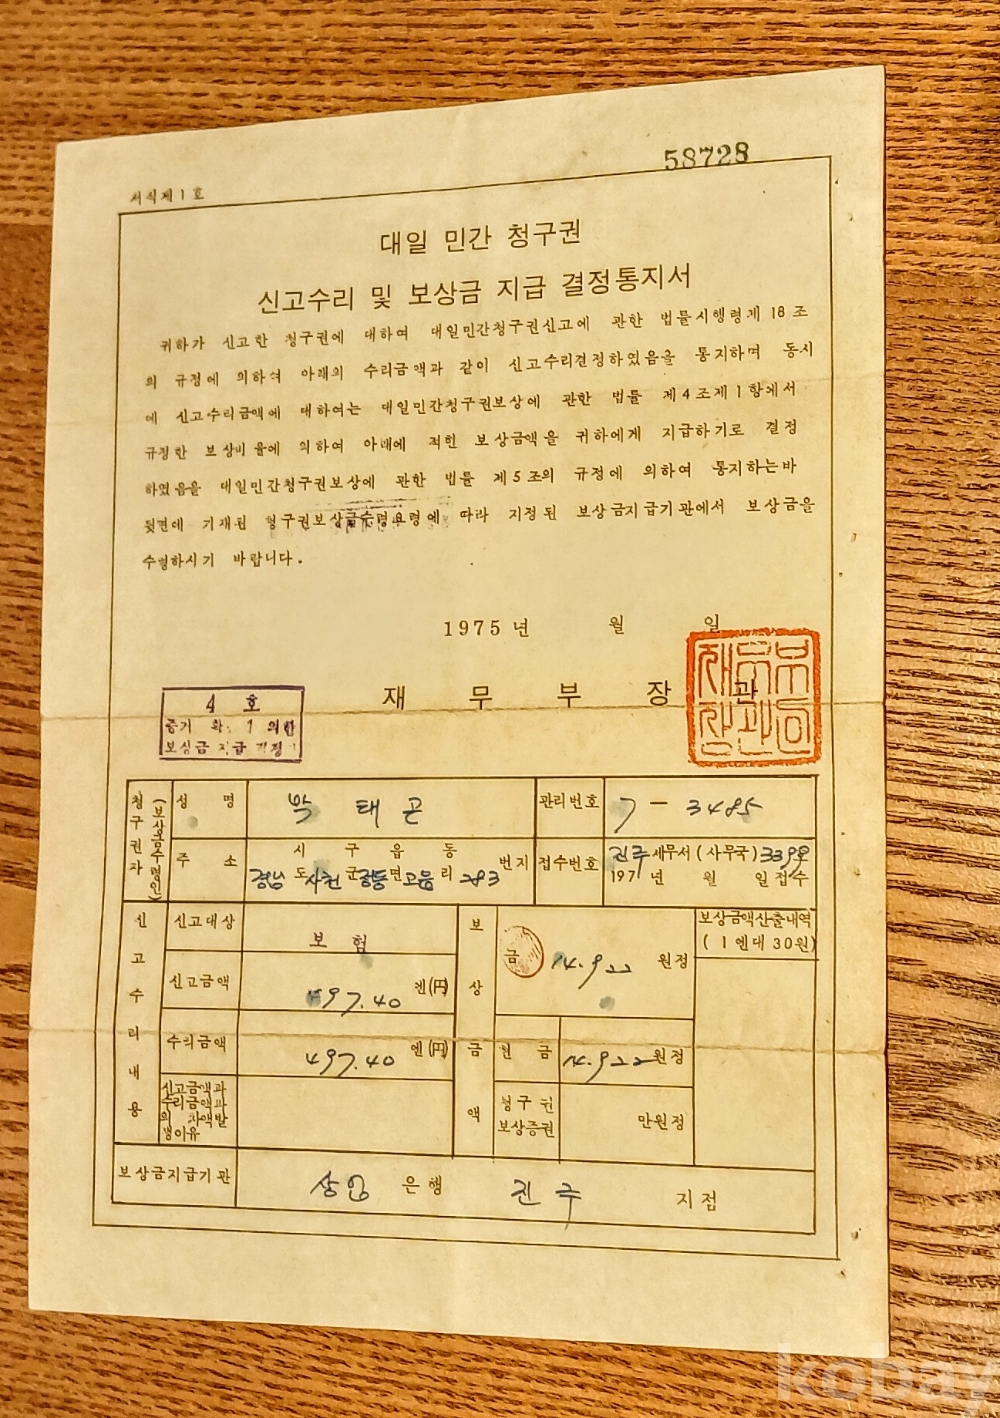 58728
서식제1호
대일 민간 청구권
신고수리 및 보상금 지급 결정통지서
귀하가 신고한 청구권에 대하여 대일민간청구권신고에 관한 법률시행령제18조
의 규정에 의하여 아래의 수리금액과 같이 신고수리결정하였음을 통지하며 동시
에 신고수리금액에 대하여는 대일민간청구권보상에 관한 법률 제4조제1항에서
규정한 보상비율에 의하여 아래에 적힌 보상금액을 귀하에게 지급하기로 결정
하였음을 대일민간청구권보상에 관한 법률 제5조의 규정에 의하여 통지하는바
뒷면에 기재된 청구권보상금수령요령에 따라 지정된 보상금지급기관에서 보상금을
수령하시기 바랍니다.
1975년 월 일
재무부장관
재무부장관
4 호
보상금 지급
청구권자 (보상금수령인)
성 명 박태곤 관리번호 7-3485
주 소 시 구 읍 동
경남 도 사천 군 면 고읍 리 283 번지
접수번호 진주 세무서 (사무국)
197 년 월 일접수
신고수리내용
신고대상 보험
신고금액 497.40 엔(円)
수리금액 497.40 엔(円)
신고금액과
수리금액과
의 차액발
생이유
보상금액
금 14.922 원정
현 금 14.922 원정
청구권
보상증권 만원정
보상금액산출내역
(1엔대 30원)
보상금지급기관 상업 은행 진주 지점
kobay